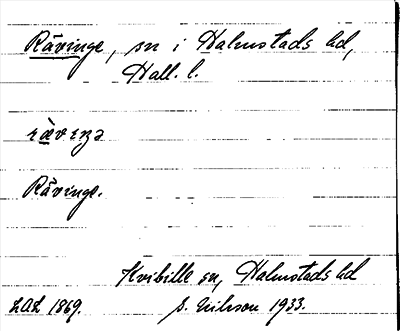 Rävinge, sn i Halmstads hd,
Hall. l.
räveŋə
Rävinge.
Kvibille sn, Halmstads hd
LAL 1869. S. Nilsson 1933.